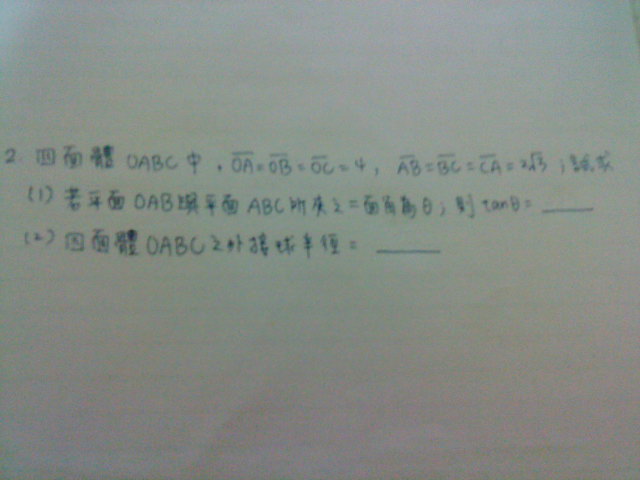 2. 四面體 OABC 中，OA=OB=OC=4，AB=BC=CA=2√3；試求
(1) 若平面 OAB與平面 ABC 所夾之二面角為θ；則 tanθ= ____
(2) 四面體 OABC之外接球半徑= ____